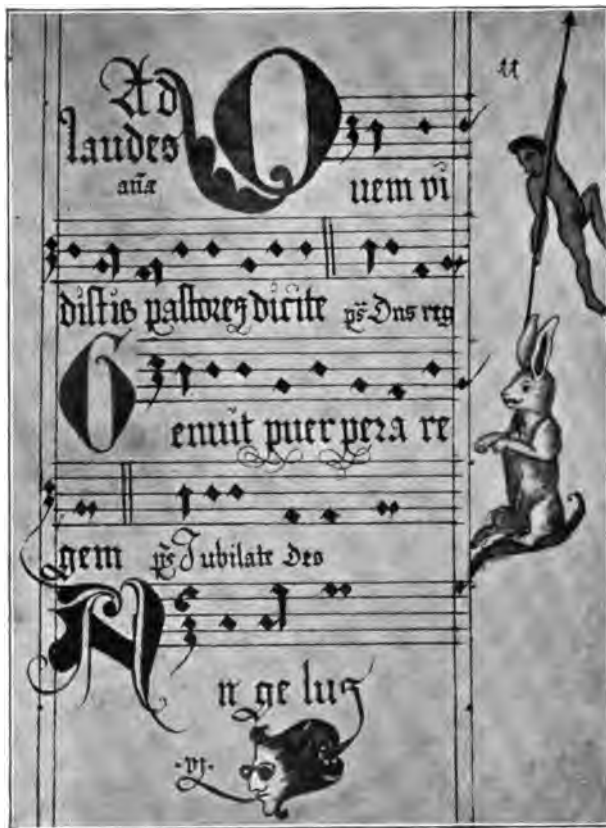 Ad
laudes
añæ
Quem vi
distis pastores dicite ps. Dns reg
Genuit puerpera re
gem ps. Jubilate Deo
An ge lus
·vj·